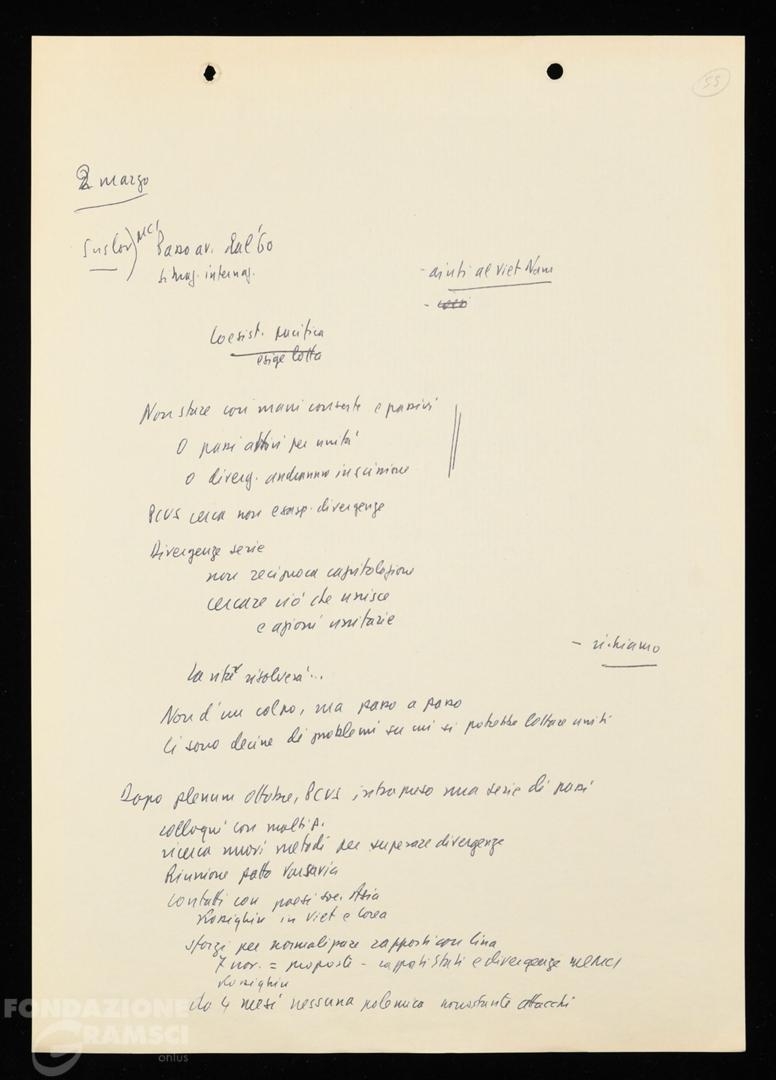 55
2 marzo
Suslov) MCI Passo av. dal '60
situaz. internaz.
- aiuti al Viet Nam
Coesist. pacifica
esige lotta
Non stare con mani conserte e passivi
O passi attivi per unità
O diverg. andranno in scissione
PCUS cerca non esasp. divergenze
Divergenze serie
non reciproca capitolazione
cercare ciò che unisce
e azioni unitarie
- richiamo
La vita risolverà...
Non d'un colpo, ma passo a passo
Ci sono decine di problemi su cui si potrebbe lottare uniti
Dopo plenum ottobre, PCUS intrapreso una serie di passi
colloqui con molti p.
ricerca nuovi metodi per superare divergenze
Riunione patto Varsavia
Contatti con paesi soc. Asia
Kossighin in Viet e Corea
sforzi per normalizzare rapporti con Cina
7 nov. = proposte - rapporti stati e divergenze nel MCI
Kossighin
da 4 mesi nessuna polemica nonostante attacchi
FONDAZIONE
GRAMSCI
onlus